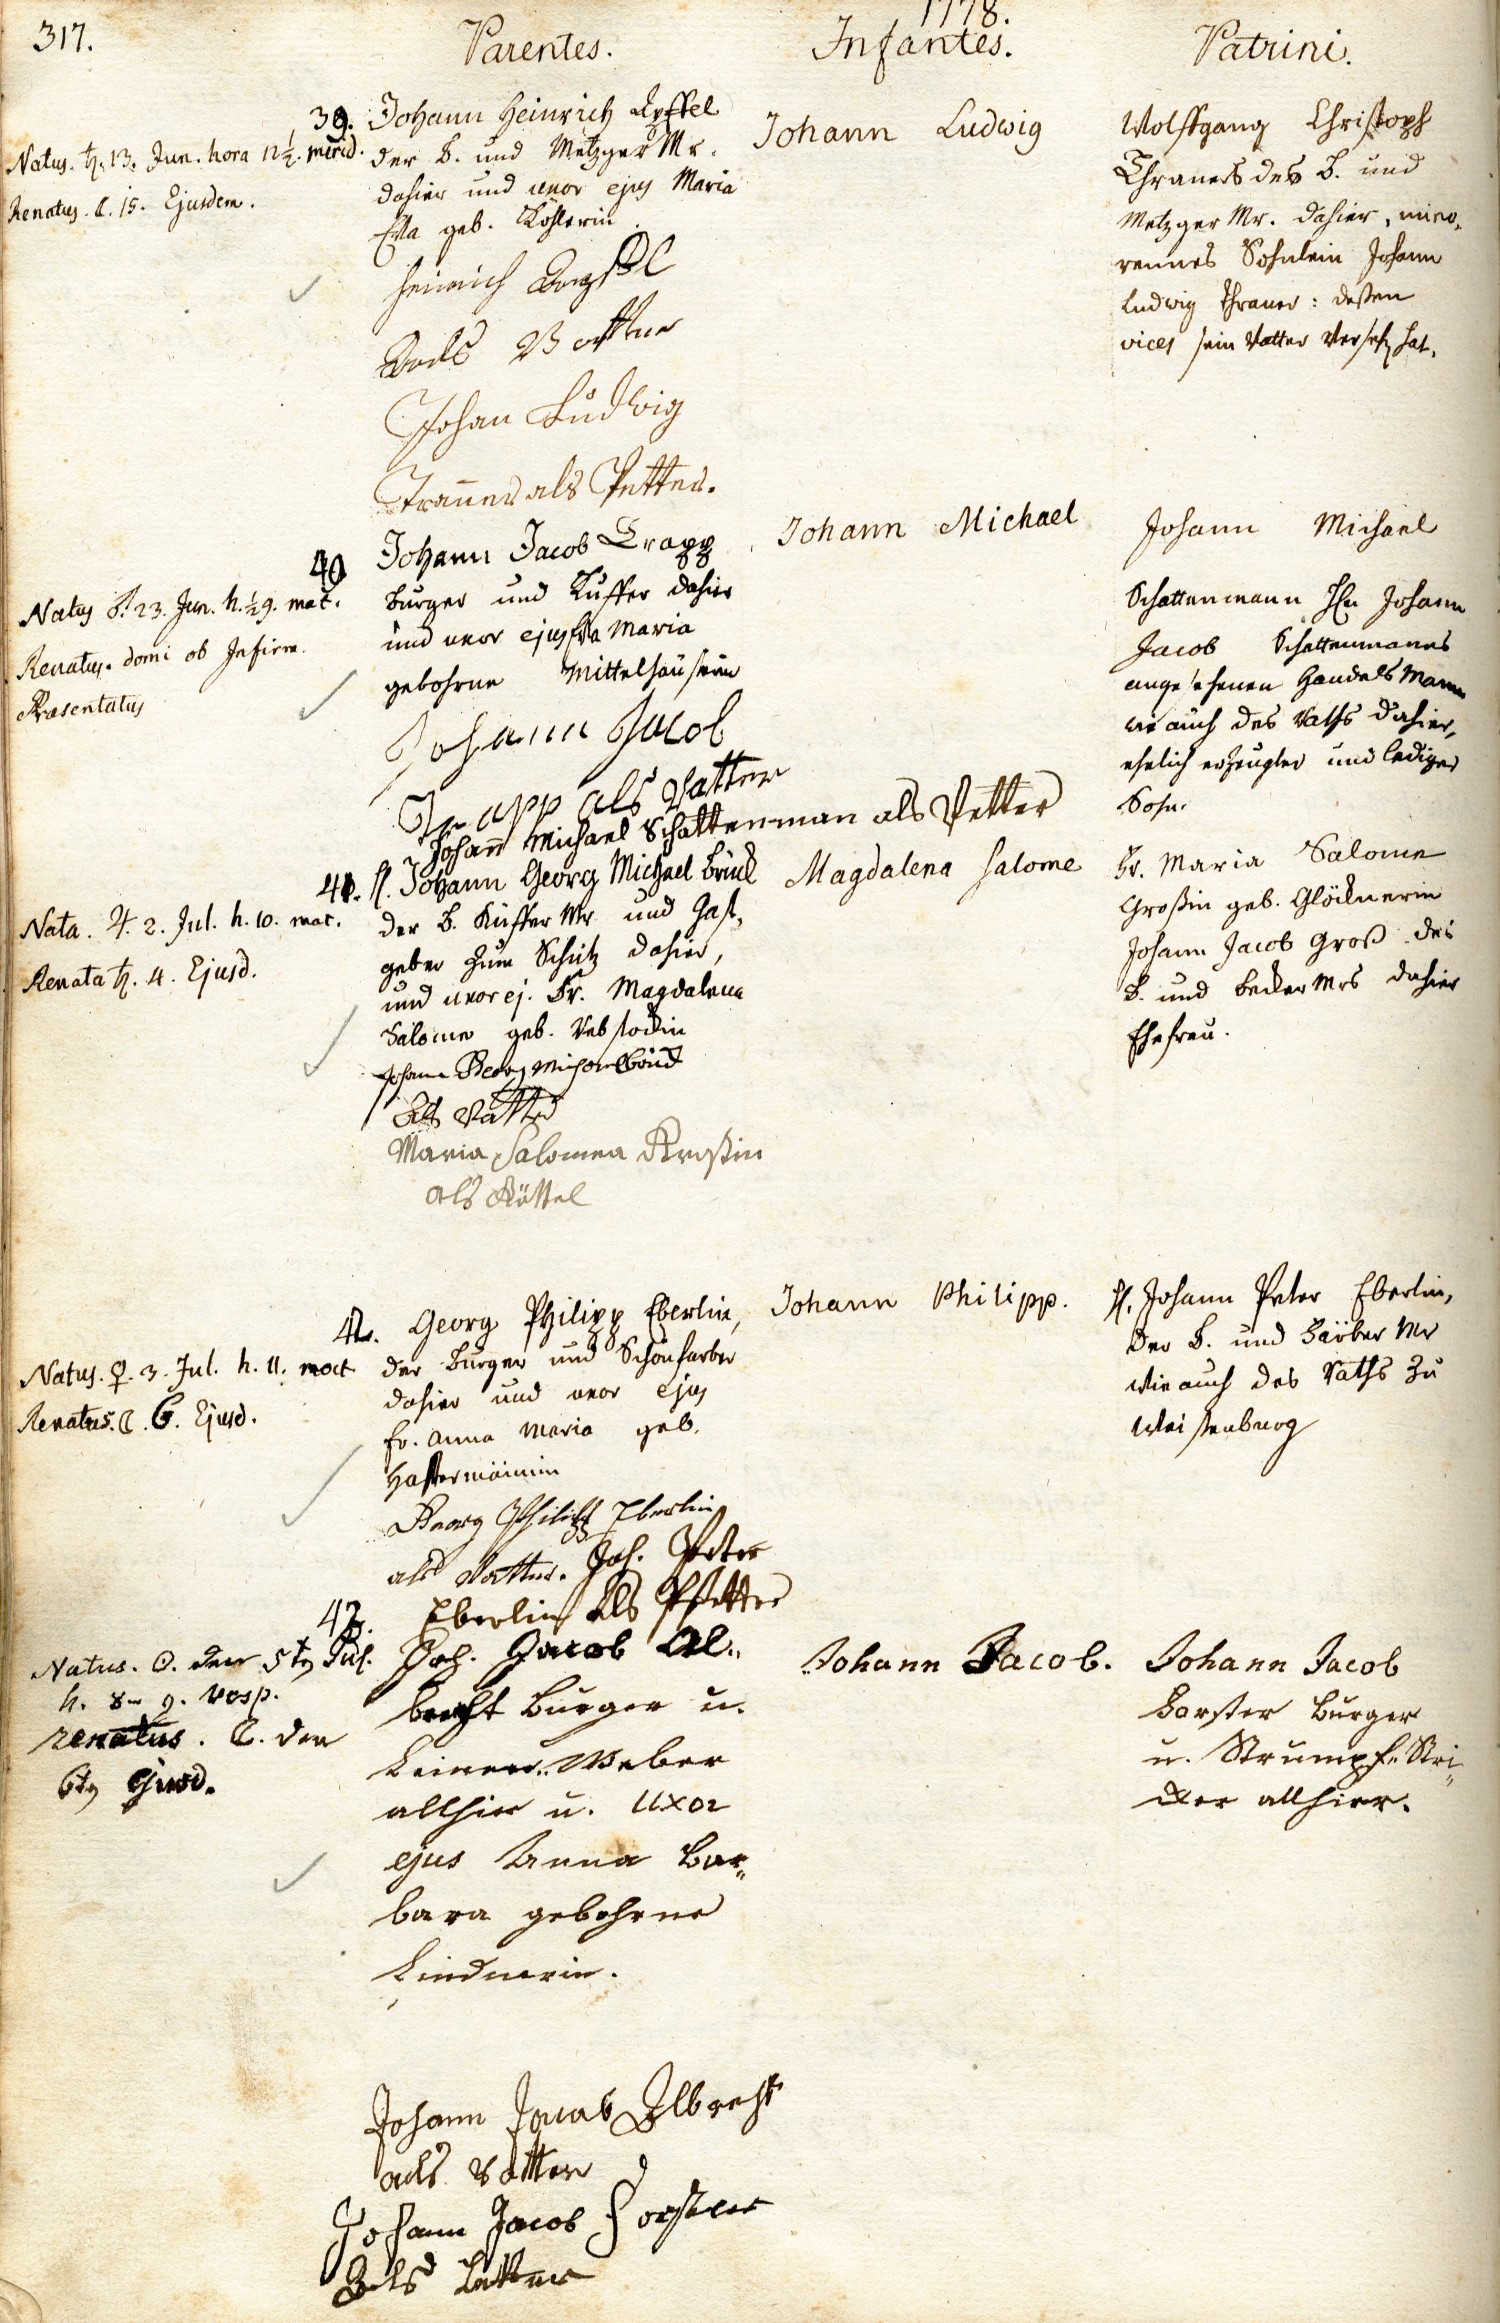 317.
1778.
Parentes. Infantes. Patrini.
39.
Natus. ♄. 13. Jun. hora 12½. merid.
Renatus. ☾. 15. Ejusdem.
Johann Heinrich
der B. und Metzger Mr.
dahier und uxor ejus Maria
Eva geb. Köhlerin
Heinrich
Vatter
Johan Ludwig
Traner als Petter.
Johann Ludwig
Wolffgang Christoph
Thraners des B. und
Metzger Mr. dahier, mino,
rennes Söhnlein Johann
Ludwig Thraner: deßen
vices sein Vatter hat.
40
Natus ♂. 23. Jun. h. ½9. mat.
Renatus. domi ob Infirm.
Præsentatus
Johann Jacob Trapp
Burger und Küffer dahier
und uxor ejus Eva Maria
gebohrne Mittelhäuserin
Johann Jacob
Trapp als Vatter
Johann Michael Schattenman als Petter
Johann Michael
Johann Michael
Schattenmann Hn Johann
Jacob Schattenmanns
angesehenen Handels Mann
wie auch des Raths dahier,
ehelich erzeugter und lediger
Sohn.
41.
Nata. ♃. 2. Jul. h. 10. mat.
Renata ♄. 4. Ejusd.
H. Johann Georg Michael
der B. Küffer Mr und Gast,
geber zum Schütz dahier,
und uxor ej. Fr. Magdalena
Salome geb. Rebstockin
Johann Georg Michael
Als Vatter
Maria Salomea Großin
als Göttel
Magdalena Salome
Fr. Maria Salome
Großin geb. Glöcknerin
Johann Jacob Groß des
B. und Becker Mrs dahier
Ehefrau.
42.
Natus. ♀. 3. Jul. h. 11. mat
Renatus. ☾. 6. Ejusd.
Georg Philipp Eberlin,
der Burger und Schönfarber
dahier und uxor ejus
Fr. Anna Maria geb.
Georg Philipp Eberlin
als Vatter. Joh. Peter
Eberlin als Pfetter
Johann Philipp.
H. Johann Peter Eberlin,
der B. und Färber Mr
wie auch des Raths zu
Weissenburg
43.
Natus. ☉. den 5tn Jul.
h. 8- 9. vesp.
renatus. ☾. den
6tn ejusd.
Joh. Jacob Al-
brecht Burger u.
Leinen-Weber
allhier u. Uxor
ejus Anna Bar-
bara gebohrne
Lindnerin.
Johann Jacob Albrecht
als Vatter
Johann Jacob Forster
Als
Johann Jacob.
Johann Jacob
Forster Burger
u. Strumpf-Stri-
cker allhier.